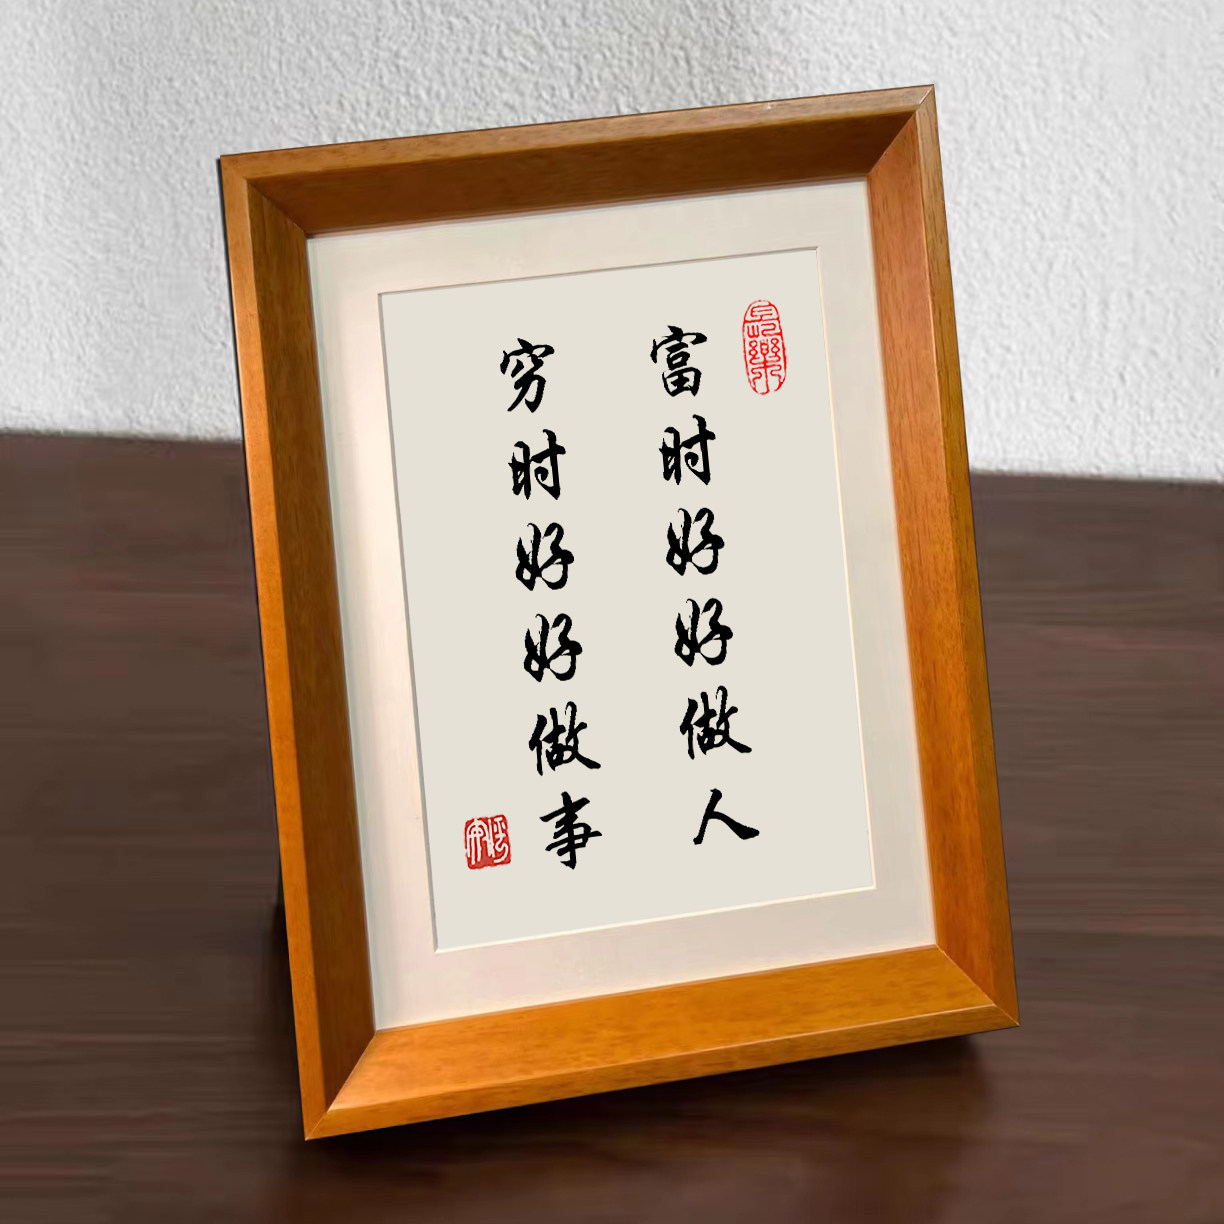 富时好好做人
穷时好好做事